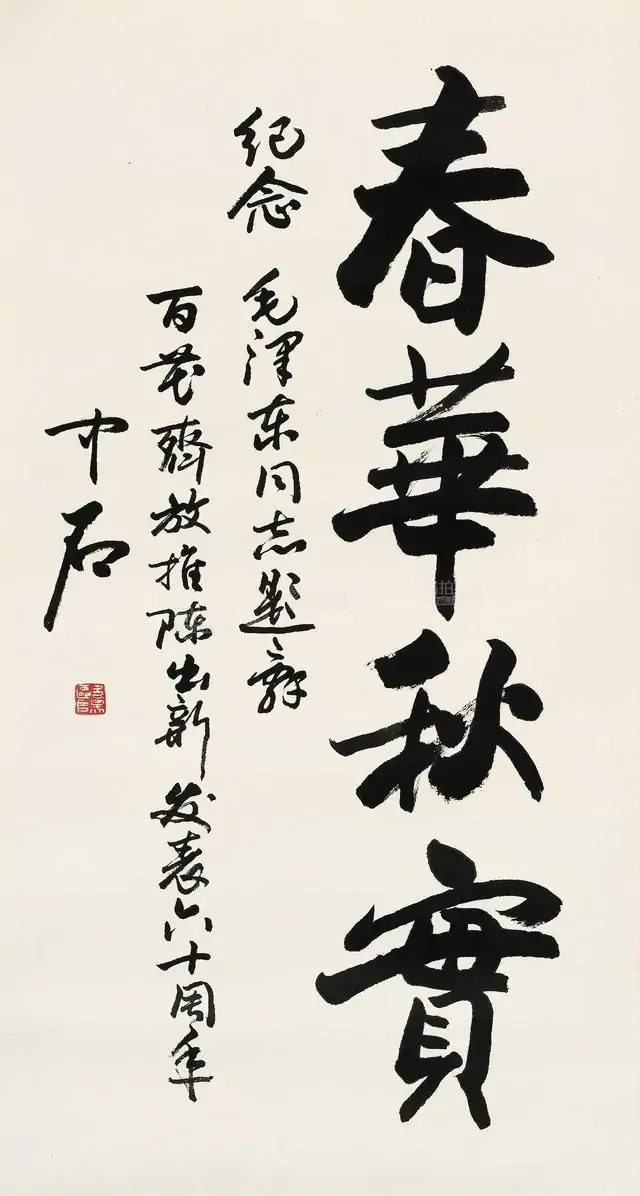 春華秋實
纪念 毛澤东同志題辞
百花齊放推陈出新 发表六十周年
中石